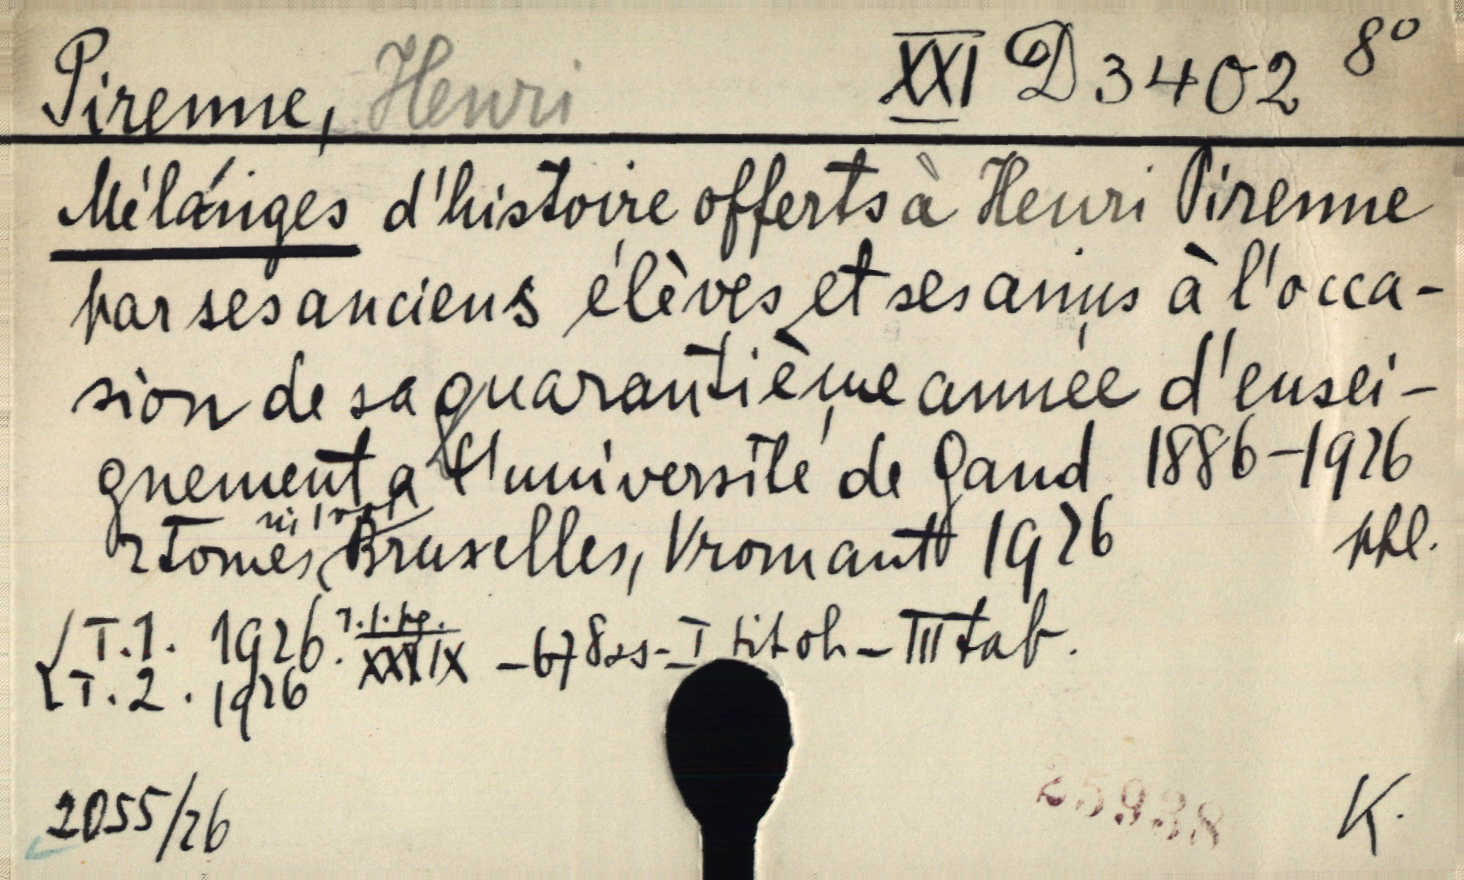 Pirenne, Henri XXI D 3402 8°
Mélánges d'histoire offerts à Henri Pirenne
par ses anciens élèves et ses amis à l'occa-
sion de sa quarantième année d'ensei-
gnement a l'université de Gand 1886-1926
2 Tomes, Bruxelles, Vromant 1926
T.1. 1926. XXXIX - 678 ss - I tit oh - III tab.
T.2. 1926
2055/26 25938 K.